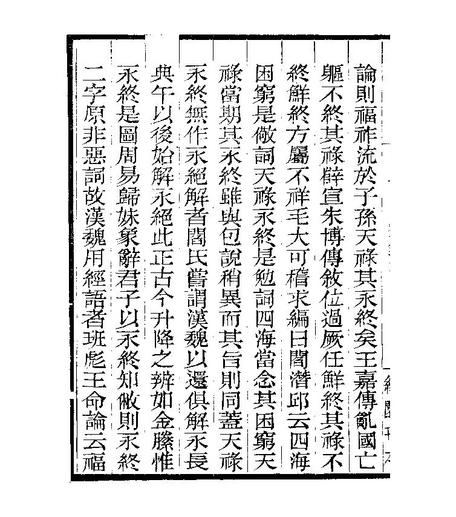 論則福祚流於子孫天祿其永終矣王嘉傳亂國亡
軀不終其祿辥宣朱博傳敘位過厥任鮮終其祿不
終鮮終方屬不祥毛大可稽求編曰閻潛邱云四海
困窮是儆詞天祿永終是勉詞四海當念其困窮天
祿當期其永終雖與包說稍異而其旨則同蓋天祿
永終無作永絕解者閻氏嘗謂漢魏以還俱解永長
典午以後始解永絕此正古今升降之辨如金縢惟
永終是圖周易歸妹象辭君子以永終知敝則永終
二字原非惡詞故漢魏用經語者班彪王命論云福